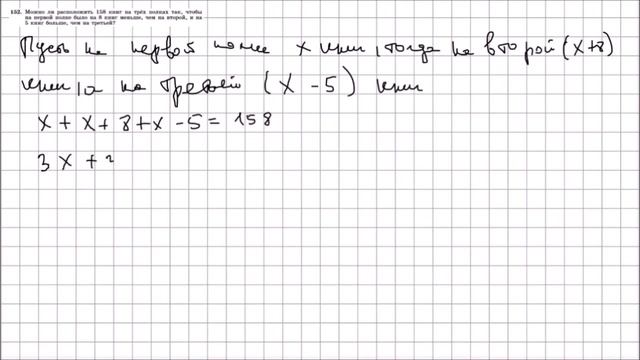 152. Можно ли расположить 158 книг на трёх полках так, чтобы
на первой полке было на 8 книг меньше, чем на второй, и на
5 книг больше, чем на третьей?
Пусть на первой полке x книг, тогда на второй (x+8)
книг, а на третьей (x-5) книг
x + x + 8 + x - 5 = 158
3x +